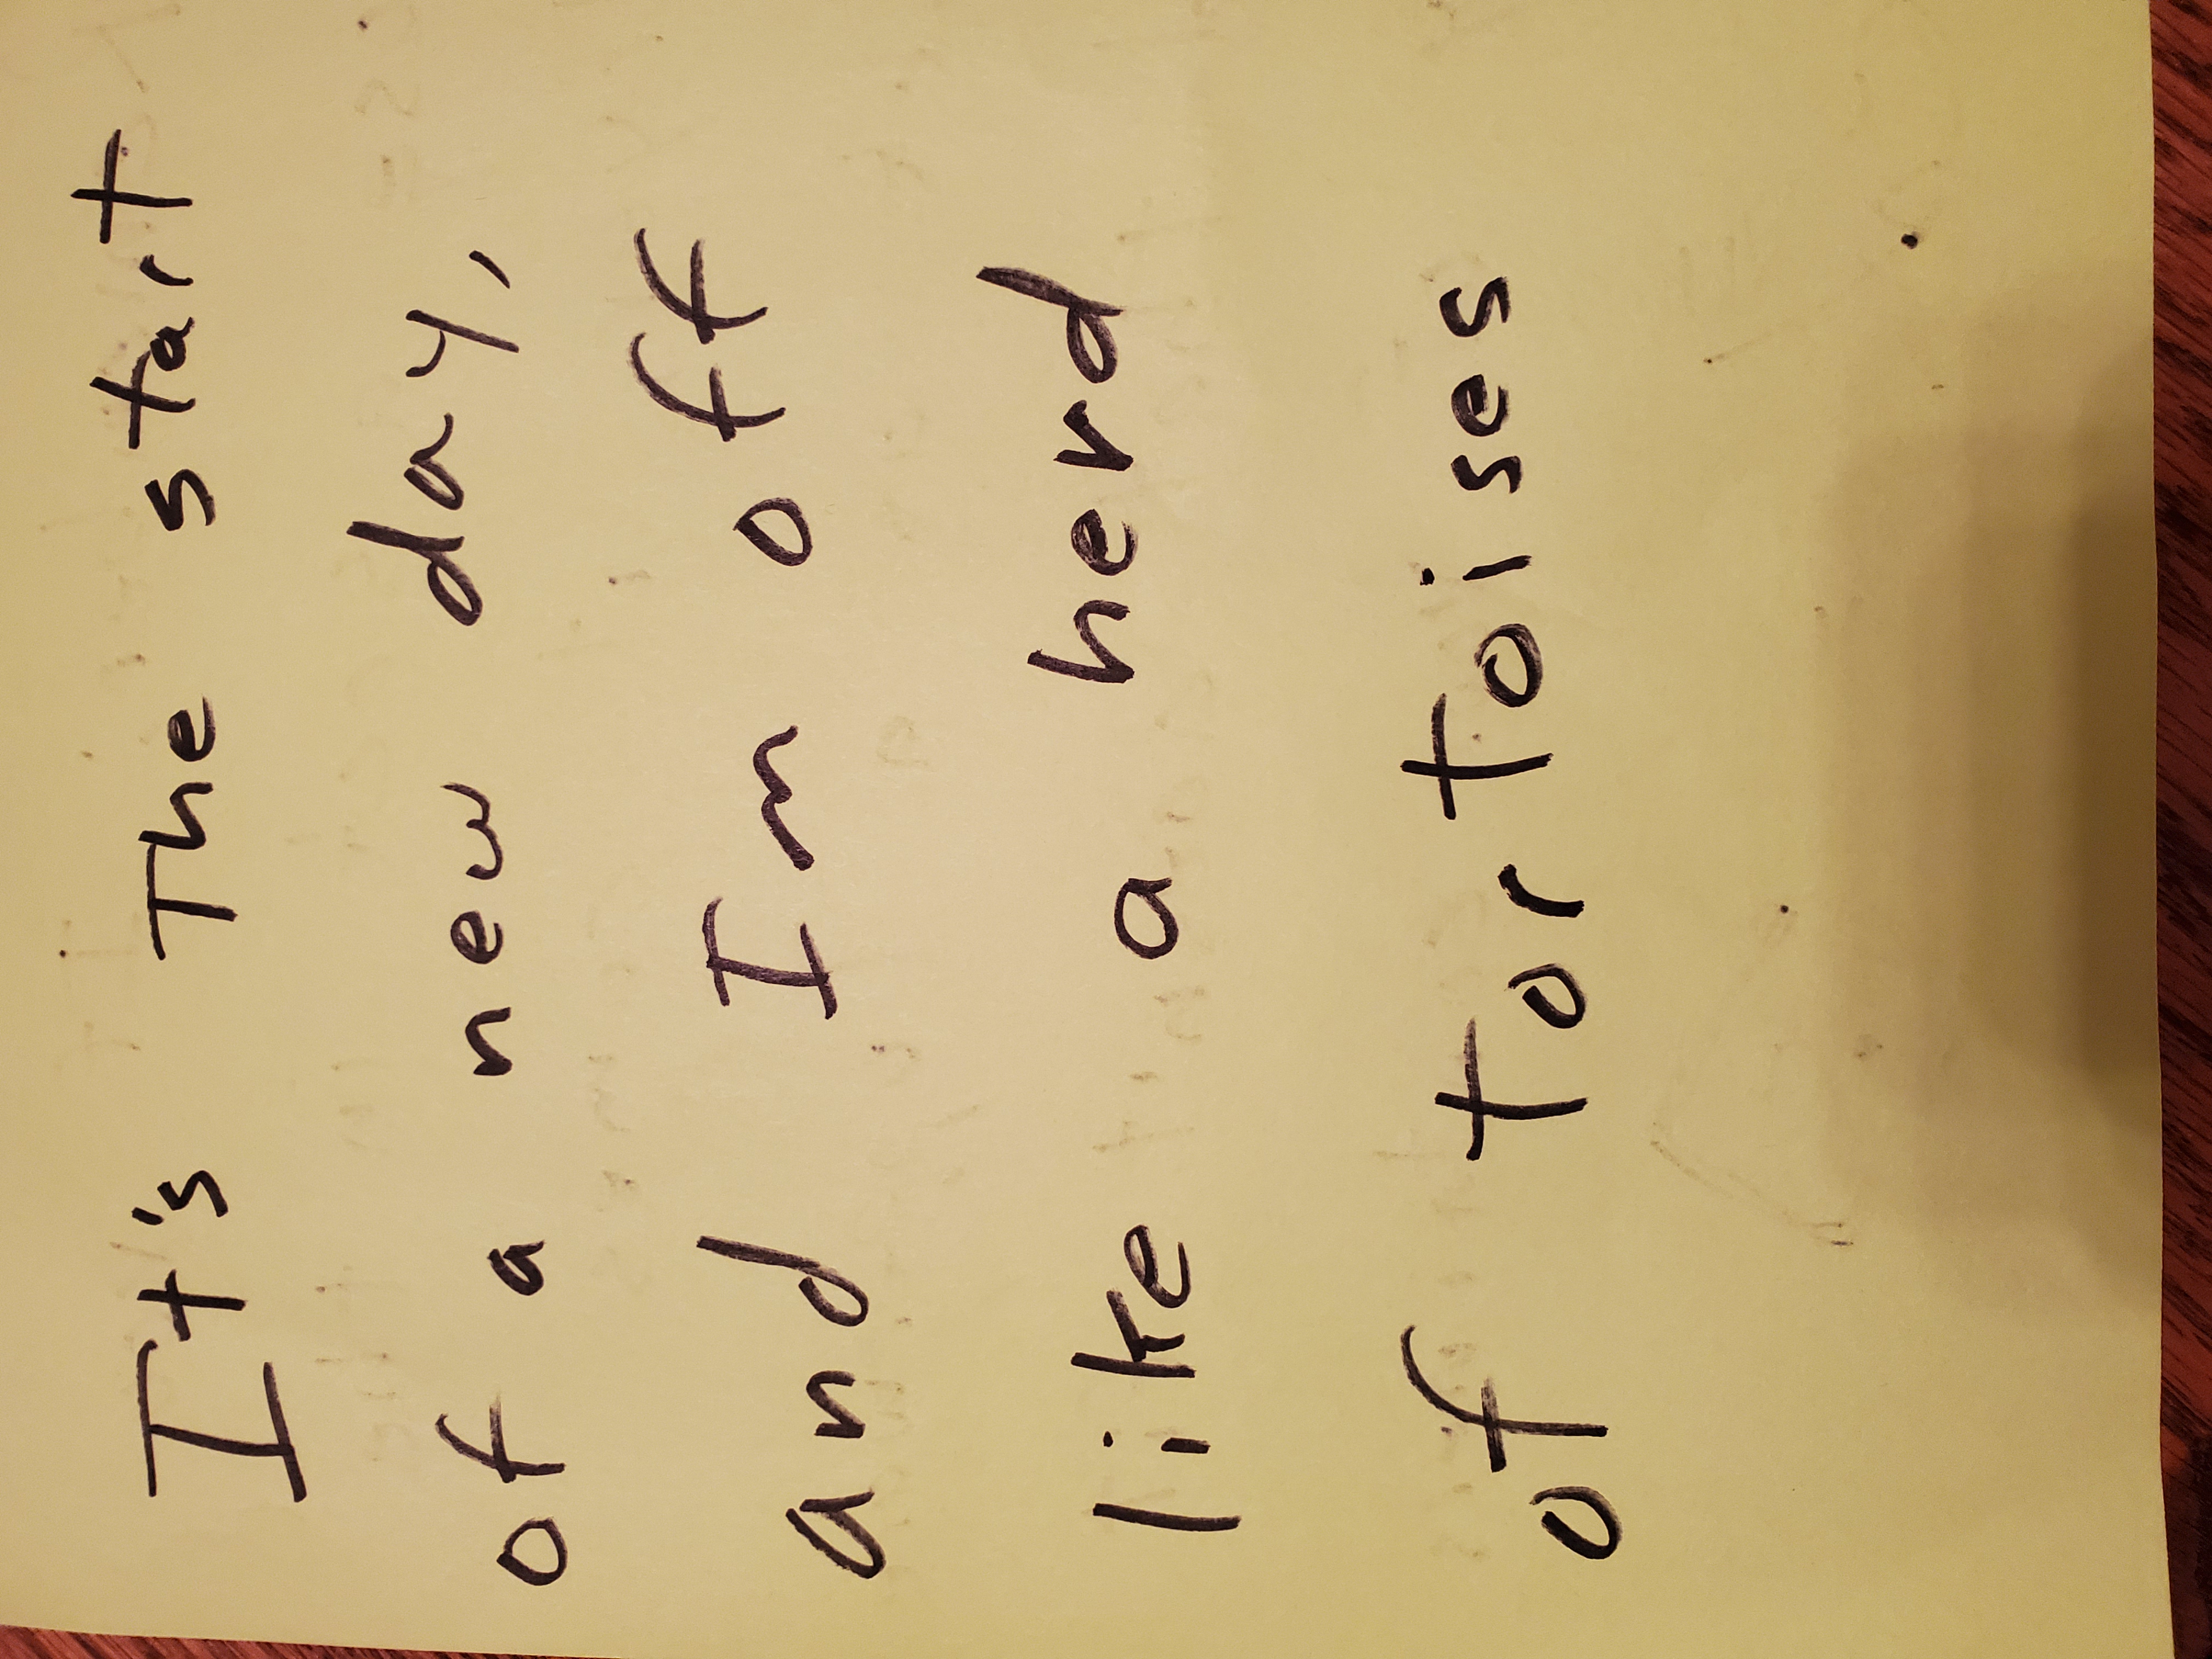 It's The start
of a new day,
and Im off
like a herd
of tortoises